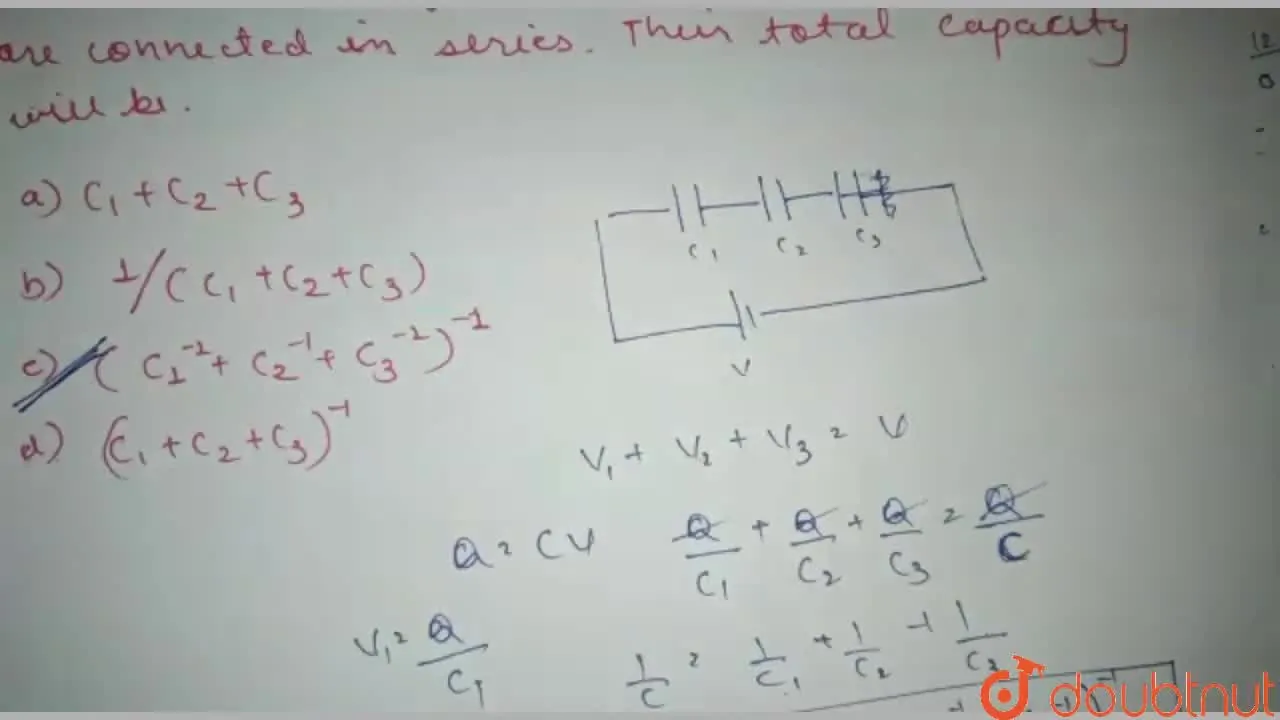 are connected in series. Their total capacity
will be.
a) C1 + C2 + C3
b) 1/(C1 + C2 + C3)
c) (C1^-1 + C2^-1 + C3^-1)^-1
d) (C1 + C2 + C3)^-1
C1 C2 C3
V
V1 + V2 + V3 = V
Q = CV Q/C1 + Q/C2 + Q/C3 = Q/C
V1 = Q/C1
1/C = 1/C1 + 1/C2 + 1/C3
12
0
doubtnut